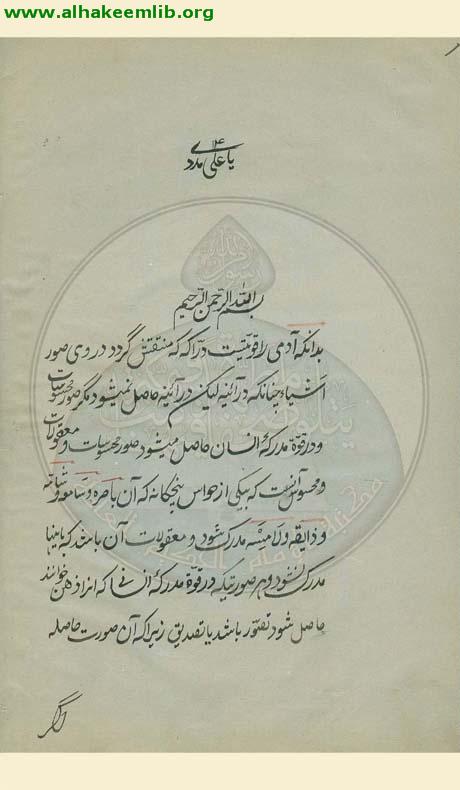 www.alhakeemlib.org
یا علی مددی
بسم الله الرحمن الرحیم
بدانکه آدمی را قوتیست دراکه که منتقش گردد در وی صور
اشیاء چنانکه در آئینه لیکن در آئینه حاصل نمیشود مگر صور محسوسات
و در قوة مدرکهٔ انسان حاصل میشود صور محسوسات و معقولات
و محسوس آنست که بیکی از حواس پنجگانه که آن باصره و سامعه و شامّه
و ذایقه و لامسه مدرک شود و معقولات آن باشد که باینها
مدرک نشود و هر صورتیکه در قوة مدرکه انسانی که انرا ذهن خوانند
حاصل شود تصور باشد یا تصدیق زیرا که آن صورت حاصله
اگر